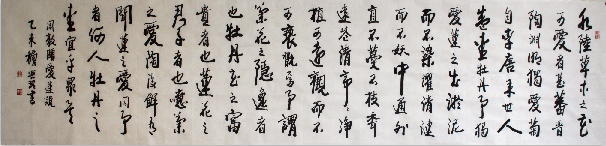 水陆草木之花
可爱者甚蕃晋
陶渊明独爱菊
自李唐来世人
甚爱牡丹予独
爱莲之出淤泥
而不染濯清涟
而不妖中通外
直不蔓不枝香
远益清亭亭净
植可远观而不
可亵玩焉予谓
菊花之隐逸者
也牡丹花之富
贵者也莲花之
君子者也噫菊
之爱陶后鲜有
闻莲之爱同予
者何人牡丹之
爱宜乎众矣
周敦颐爱莲说
乙未
书